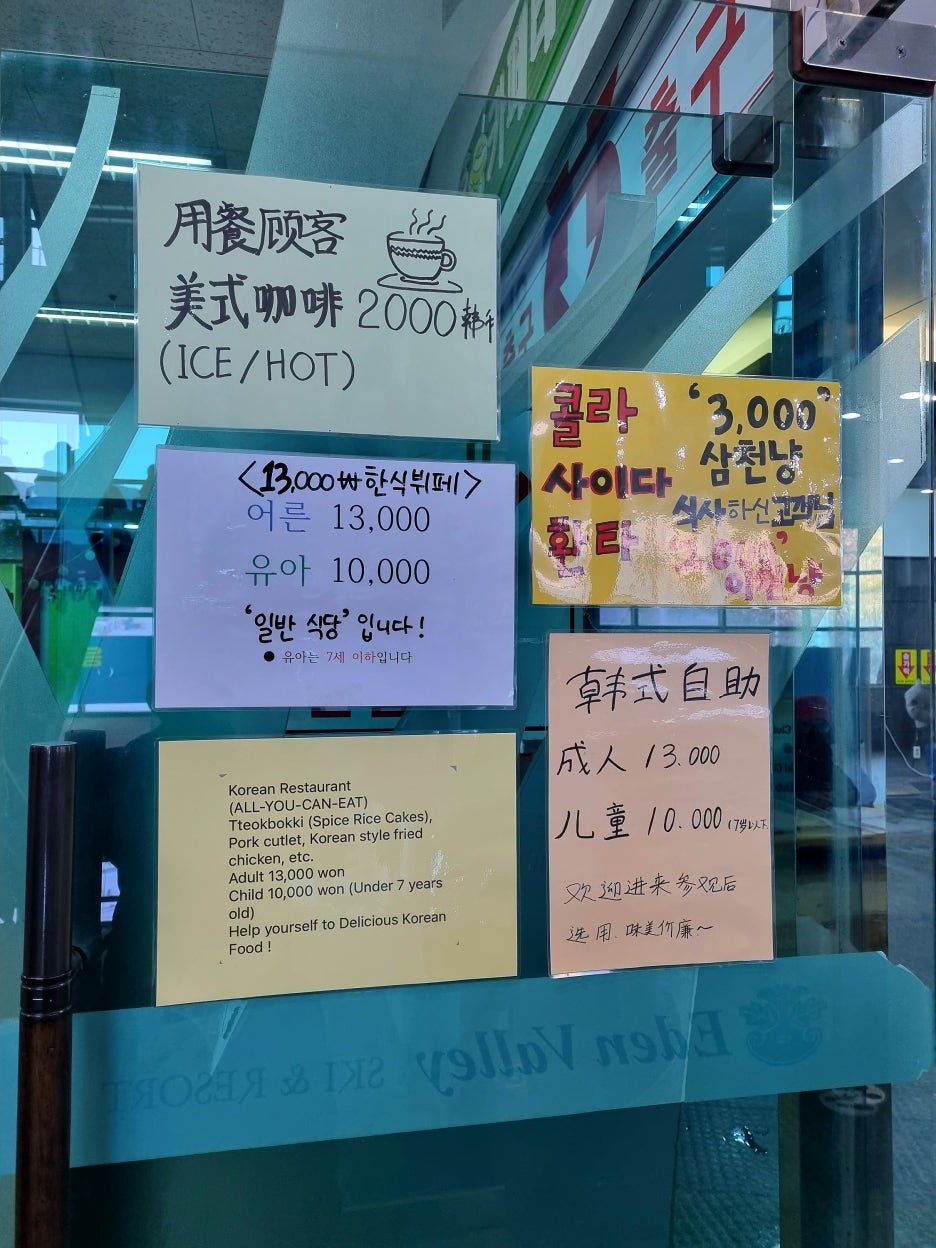 用餐顾客
美式咖啡 2000 韩币
(ICE/HOT)
<13,000₩ 한식뷔페>
어른 13,000
유아 10,000
'일반 식당' 입니다!
● 유아는 7세 이하입니다
Korean Restaurant
(ALL-YOU-CAN-EAT)
Tteokbokki (Spice Rice Cakes),
Pork cutlet, Korean style fried
chicken, etc.
Adult 13,000 won
Child 10,000 won (Under 7 years
old)
Help yourself to Delicious Korean
Food !
콜라
사이다
환타
'3,000'
삼천냥
식사하신 고객님
이천냥
韩式自助
成人 13.000
儿童 10.000 (7岁以下
欢迎进来参观后
选用、味美价廉~
Eden Valley SKI & RESORT
출구